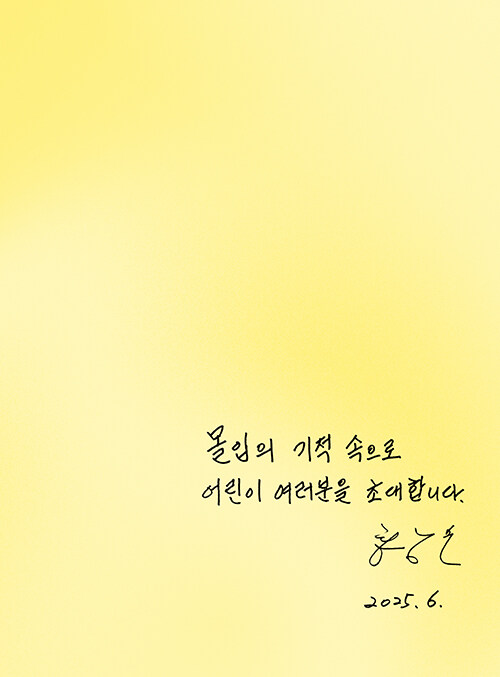 몰입의 기적 속으로
어린이 여러분을 초대합니다.
2025. 6.